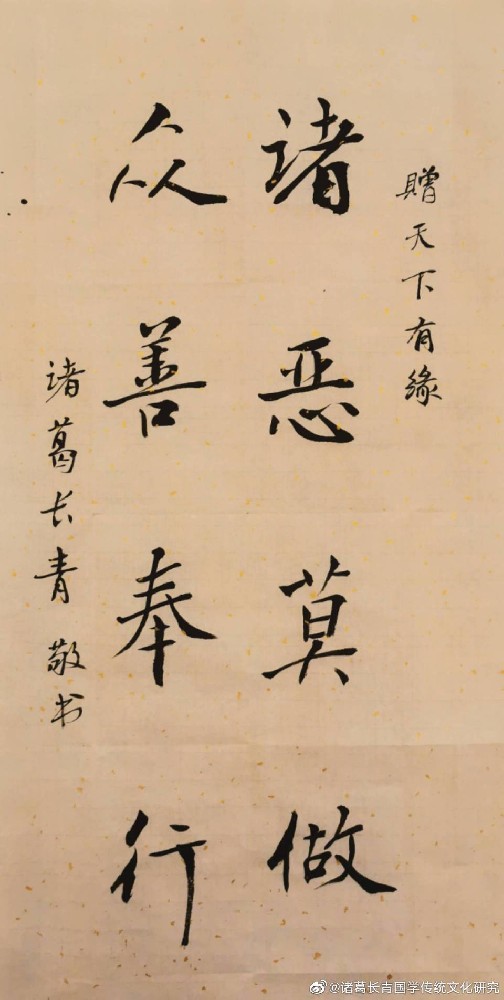 赠天下有缘
诸恶莫做
众善奉行
诸葛长青 敬书
@诸葛长青国学传统文化研究